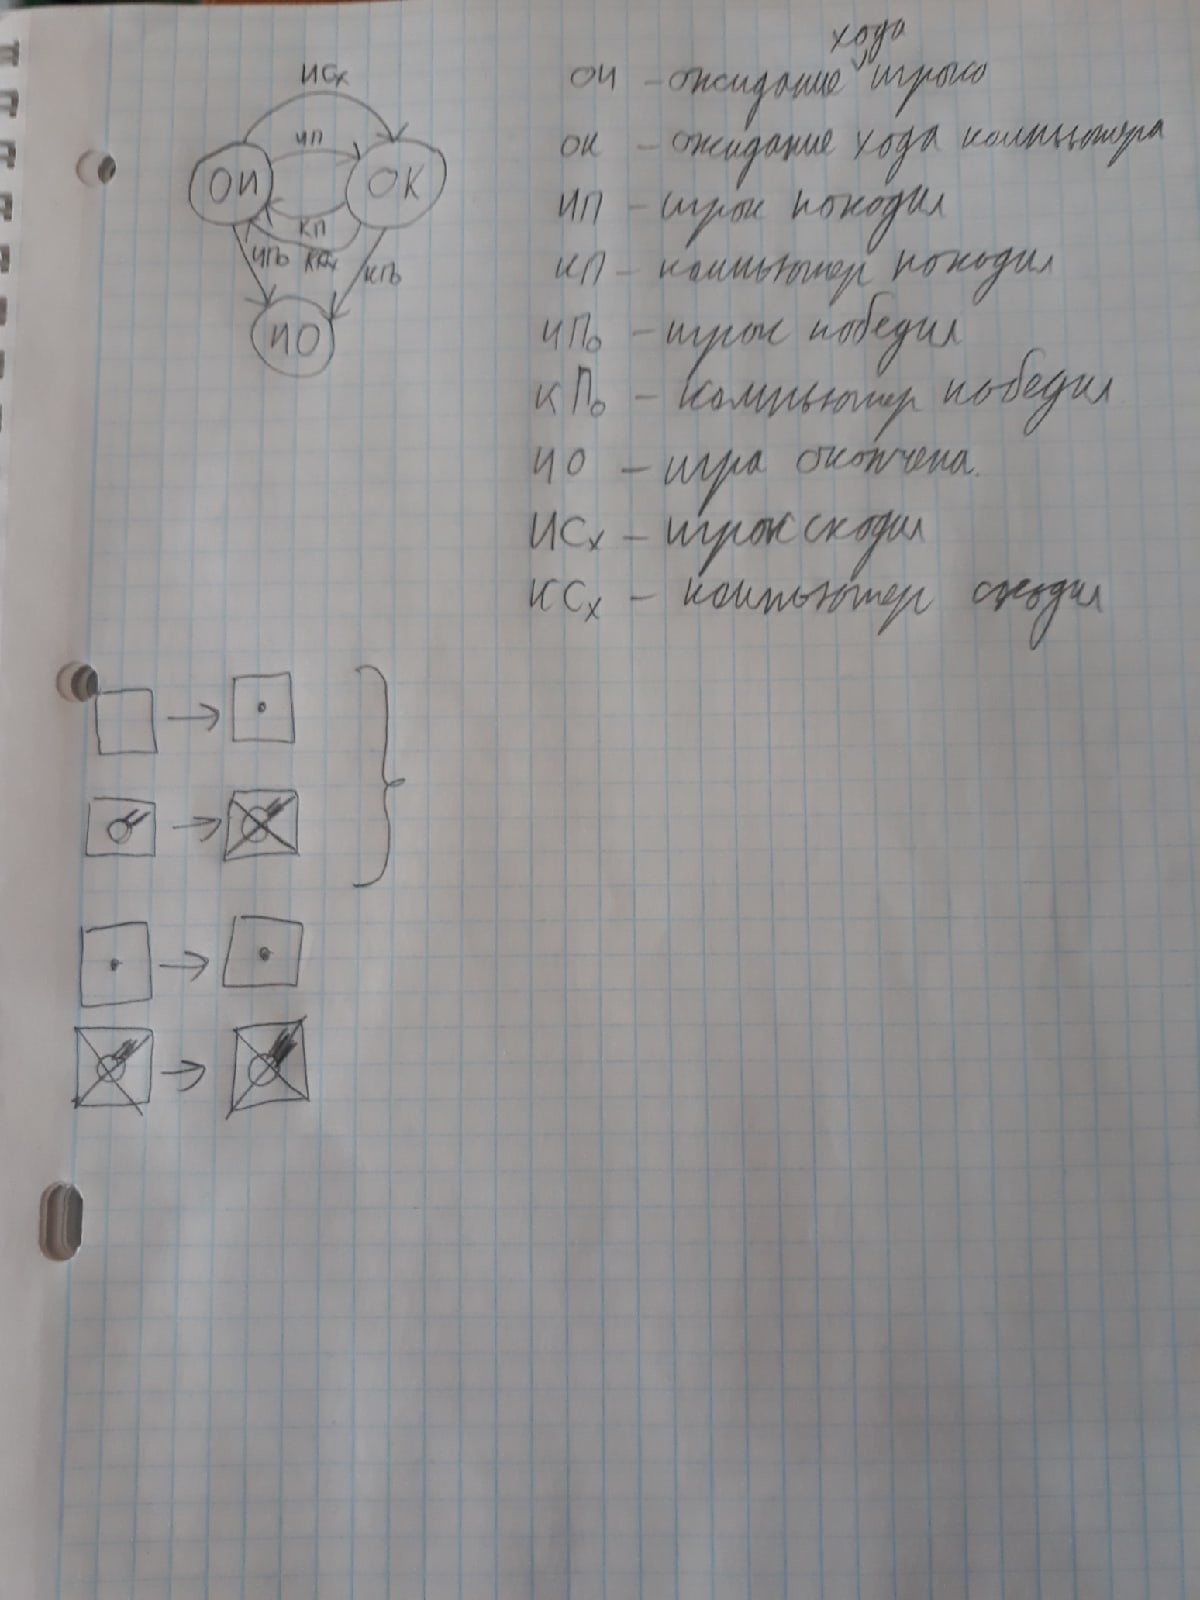 ИСх
ИП
ОИ
ОК
КП
ИПо
КСх
КПо
ИО
хода
ОИ – ожидание игрока
ОК – ожидание хода компьютера
ИП – игрок походил
КП – компьютер походил
ИПо – игрок победил
КПо – компьютер победил
ИО – игра окончена.
ИСх – игрок сходил
КСх – компьютер сходил